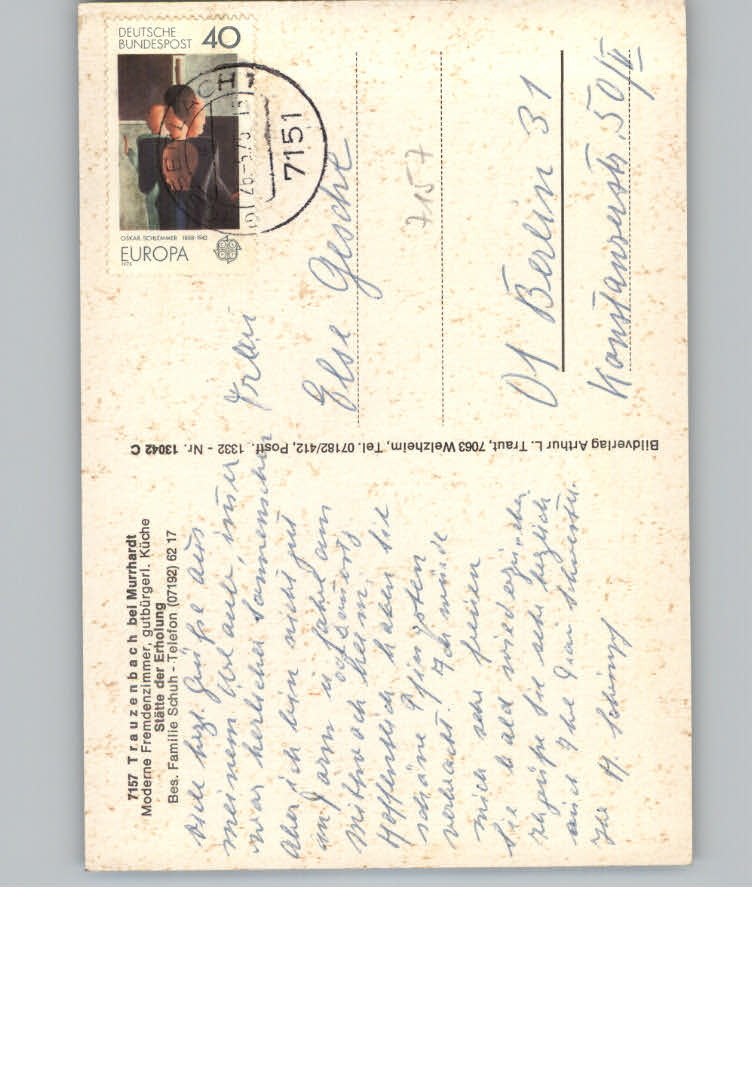 7157 Trauzenbach bei Murrhardt
Moderne Fremdenzimmer, gutbürgerl. Küche
Stätte der Erholung
Bes. Familie Schuh - Telefon (07192) 62 17
Viele herzl. Grüße aus
meinem
war herlicher Sonnenschein
Aber ich bin nicht gut
an Farm u fahre am
Mittwoch heim.
Hoffentlich haben Sie
schöne Pfingsten
verbracht. Ich würde
mich sehr freuen
Sie bald wiederzusehen
grüße Sie sehr herzlich
auch Ihre Frau Schwester.
Ihr A. Schimpf
Bildverlag Arthur L. Traut, 7063 Welzheim, Tel. 07182/412, Postf. 1332 - Nr. 13042 C
DEUTSCHE
BUNDESPOST 40
OSKAR SCHLEMMER 1888-1943
EUROPA
1975
7151
Frau
Else Gesche
7157
D1 Berlin 31
Konstanzerstr. 50/II